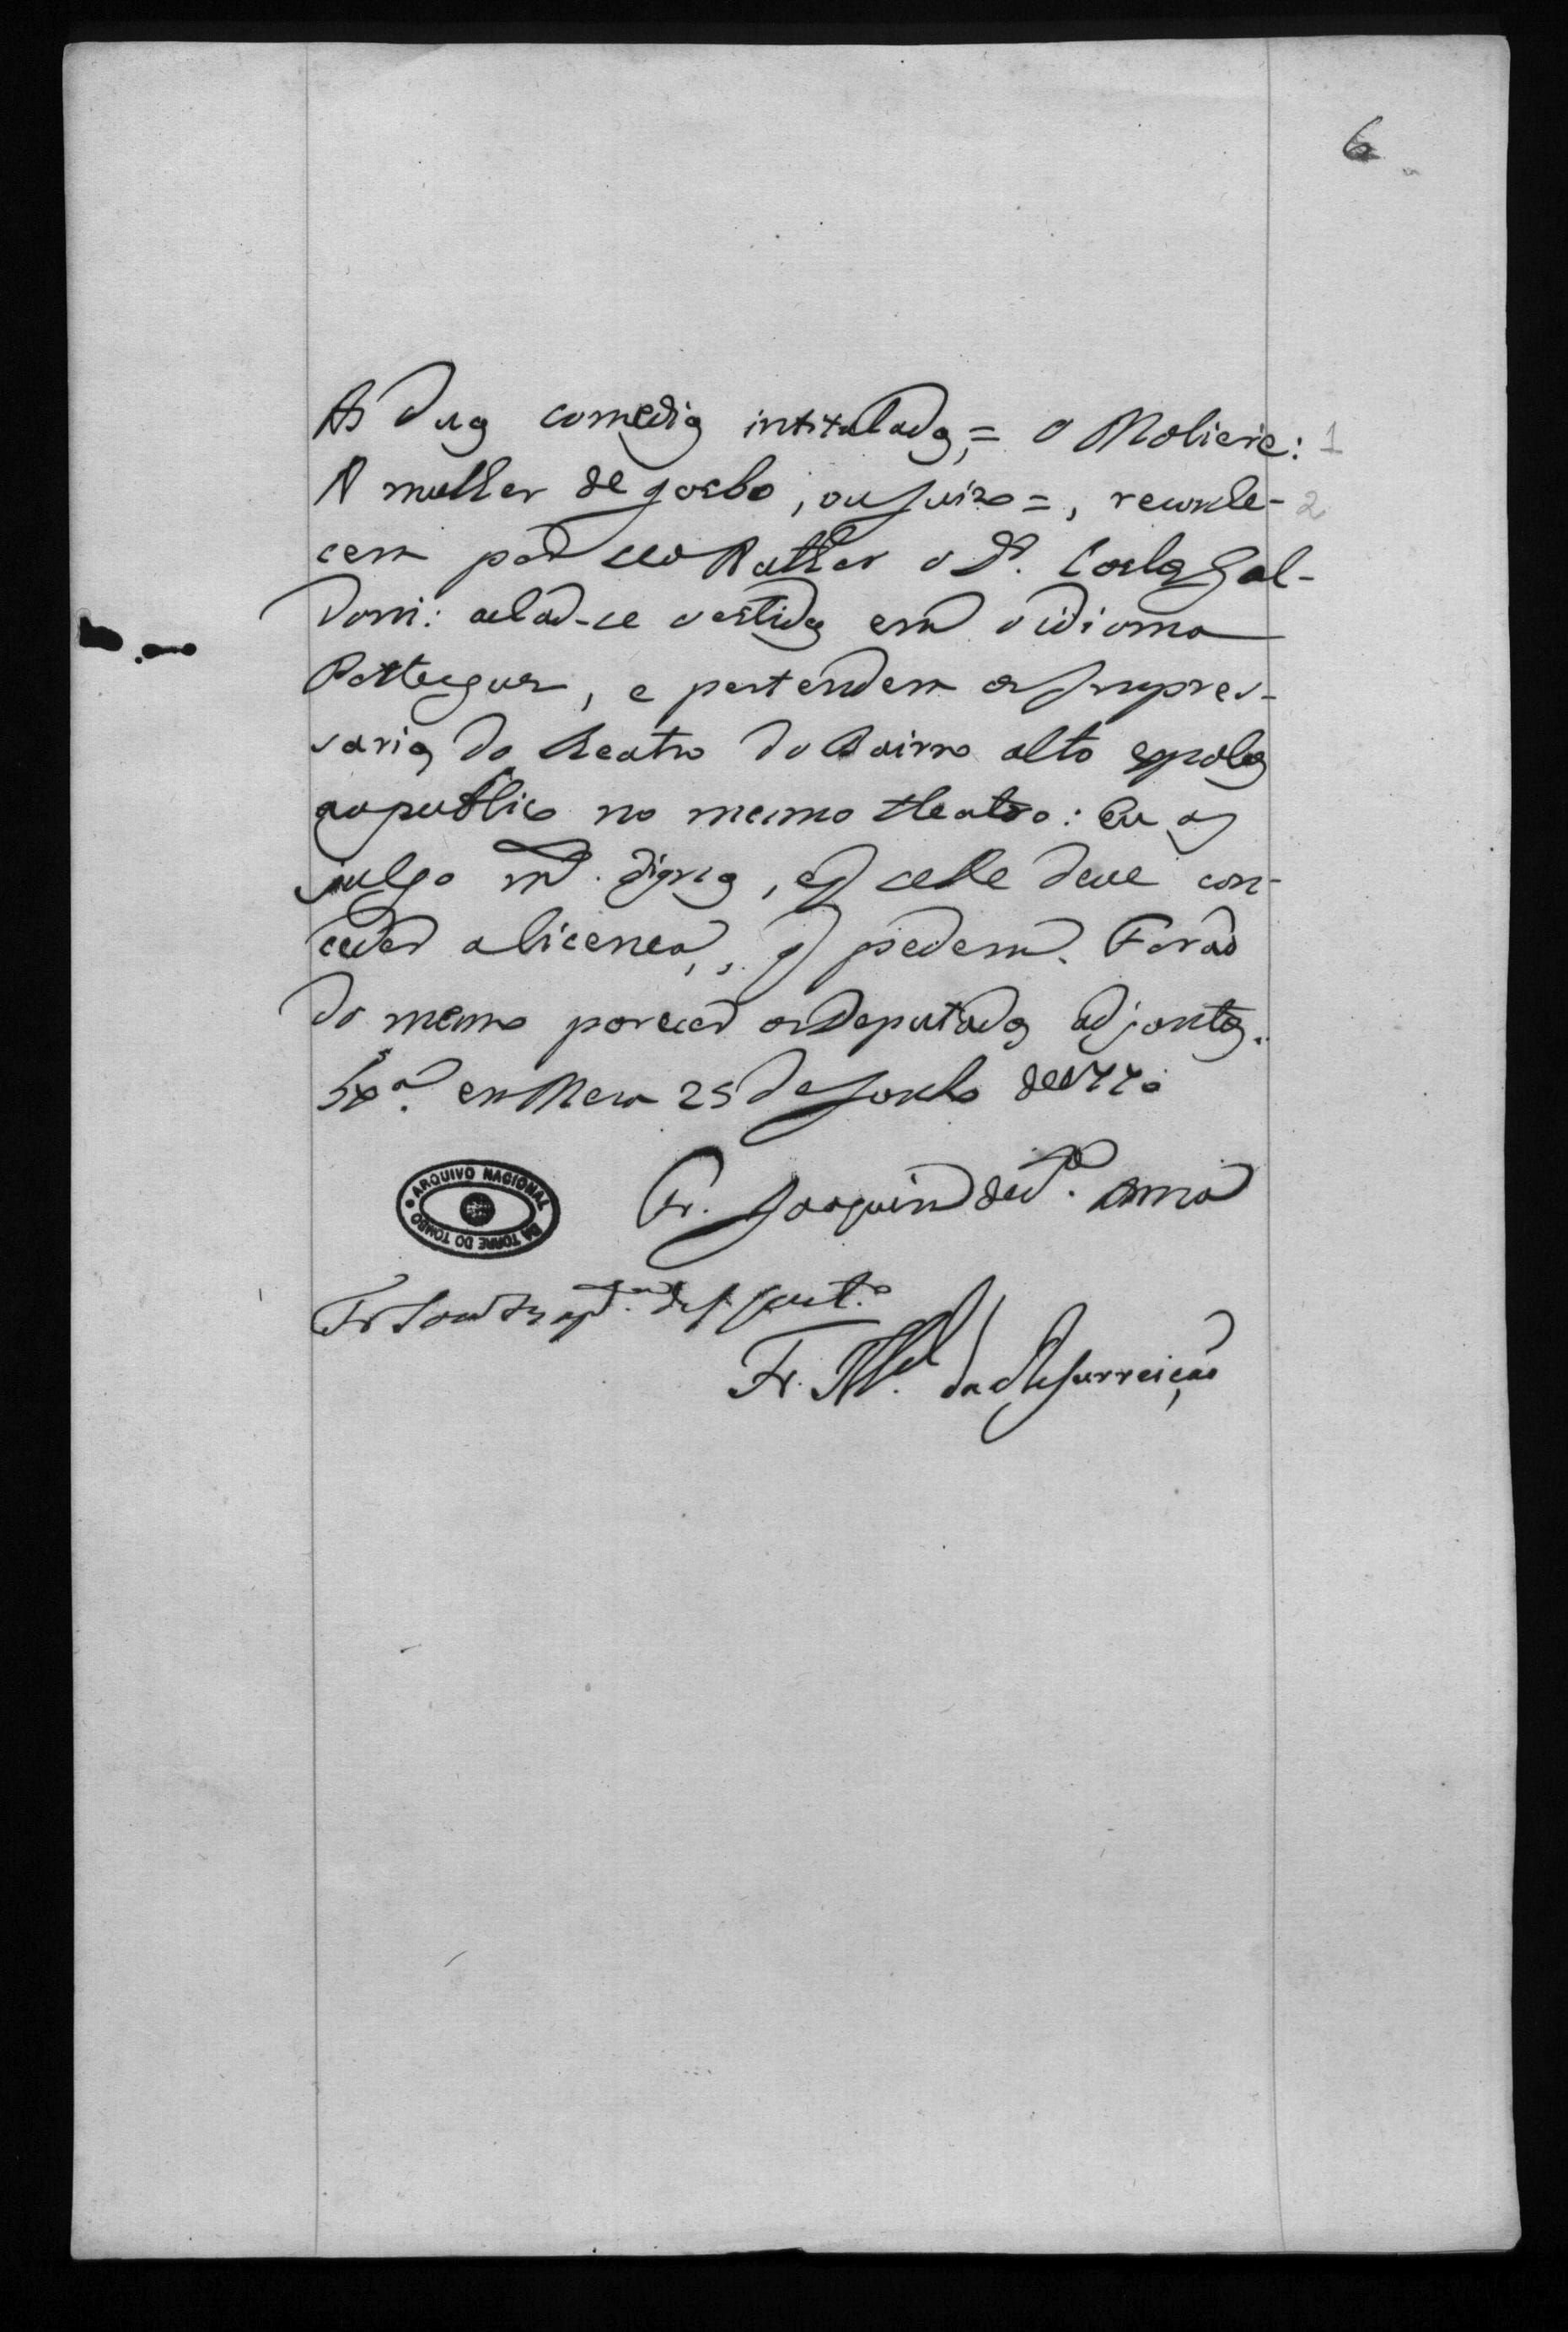 6
As duas comedias intituladas = O Moliere: 1
A mulher de garbo, ou juizo =, reconhe- 2
cem por seo Author o Dr. Carlos Gol-
doni: achaõ-se vestidas em o idioma
Portuguez, e pertendem os Impres-
sarios do theatro do Bairro alto expolas
ao publico no mesmo theatro: Eu as
julgo m.to dignas, e q̃ selhe deve con-
ceder a licenca, q̃ pedem. Foraõ
do mesmo parecer os Deputados adjuntos.
Lxa. em Meza 25 de Junho de 1770
Fr. Joaquim de S.ta Anna
ARQUIVO NACIONAL DA TORRE DO TOMBO
Fr
Fr. M.el da Resurreiçaõ